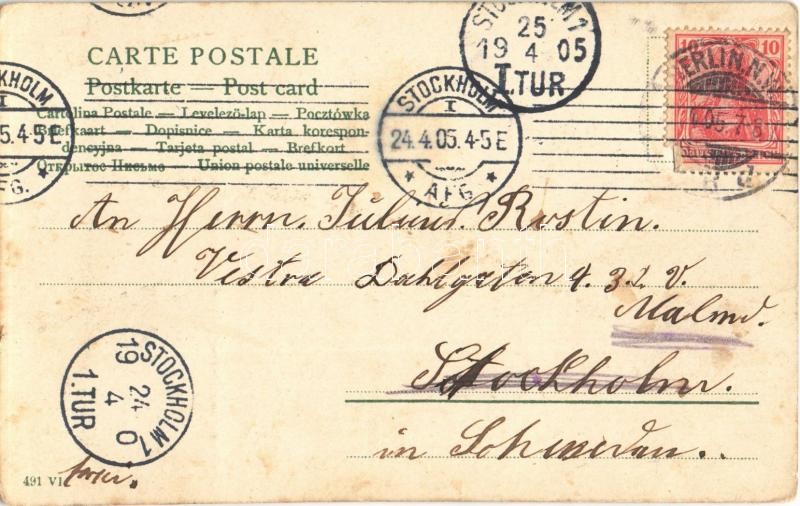 CARTE POSTALE
Postkarte — Post card
Carolina Postale — Levelező-lap — Pocztówka
Briefkaart — Dopisnice — Karta korespon-
dencyjna — Tarjeta postal — Brefkort
Открытое Письмо — Union postale universelle
STOCKHOLM 1
25
19 4 05
1.TUR
STOCKHOLM
I
24.4.05.4-5E
AFG.
STOCKHOLM
I
5.4-5E
AFG.
BERLIN N.
10 10
An Herrn. Rostin.
Vestra Dahlgaten 4. 3.2. V.
Malmö.
Stockholm.
in Schweden..
STOCKHOLM 1
19 24 0
4
1.TUR
491 VI